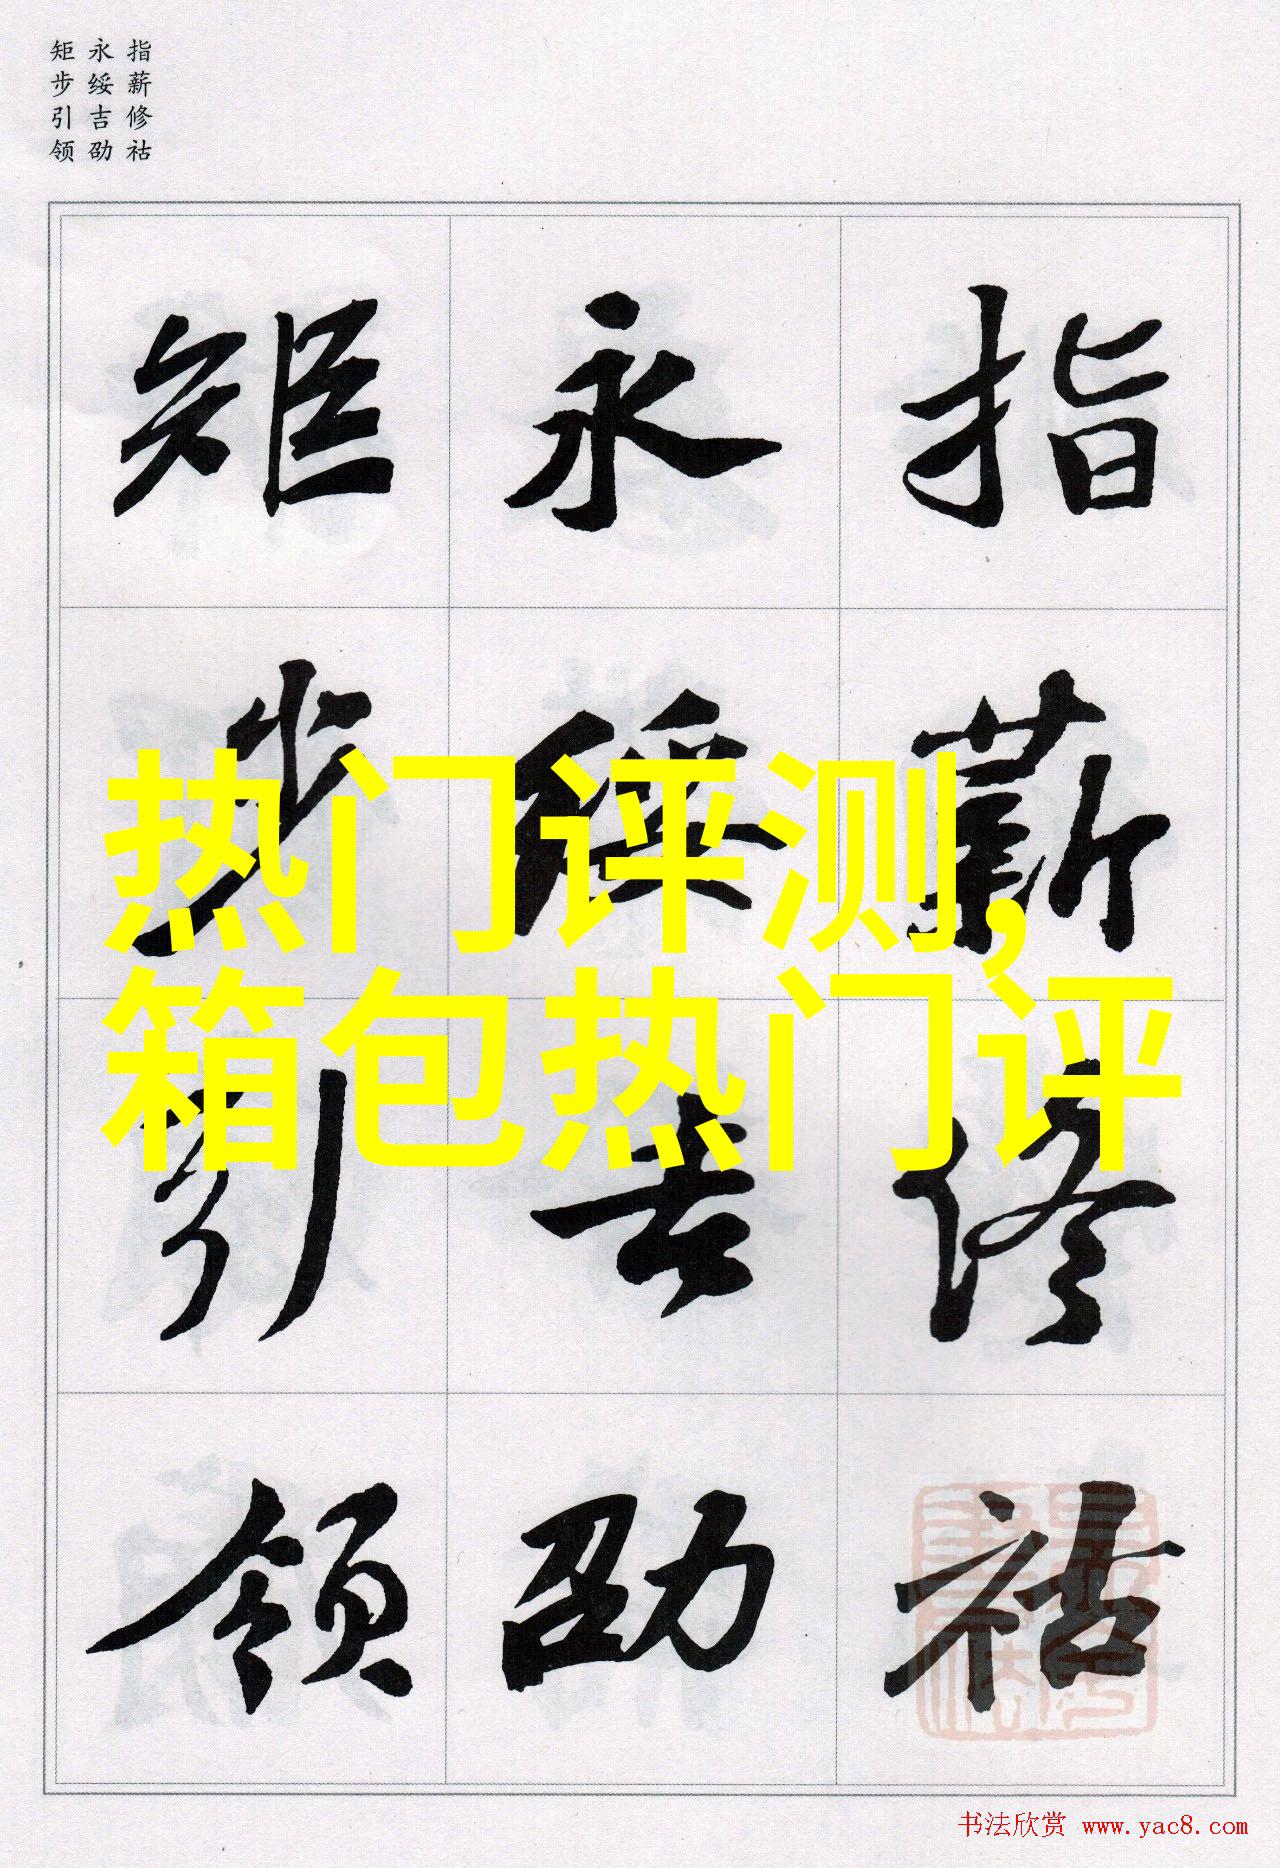 指薪修祜
永绥吉劭
矩步引领
指薪修祜
永绥吉劭
矩步引领
热门评测,
箱包热门评
书法欣赏 www.yac8.com